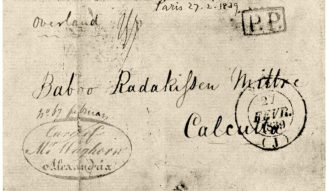 Paris 27.2.1839
Overland
P.P.
Baboo Radakissen Mittre
27
FEVR.
1839
Calcutta
(J)
Care of
Mr. Waghorn
Alexandria